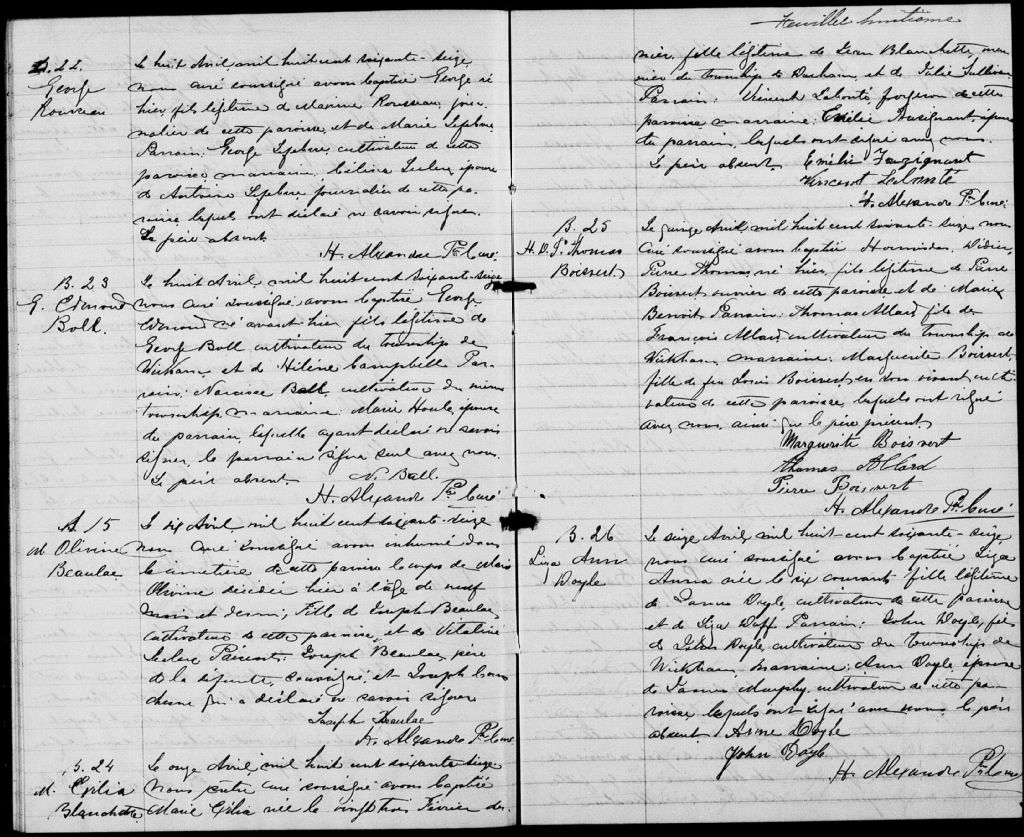 B. 22.
George
Rousseau
Le huit Avril mil huit cent soixante-seize
nous curé soussigné avons baptisé George né
hier, fils légitime de Maxime Rousseau, jour-
nalier de cette paroisse et de Marie Lefebvre
Parrain: George Lefebvre cultivateur de cette
paroisse, marraine, Célina Leclerc épouse
de Antoine Lefebvre journalier de cette pa-
roisse lesquels ont déclaré ne savoir signer.
Le père absent.
H. Alexandre Ptre Curé
B. 23
G. Edmond
Ball.
Le huit Avril mil huit cent soixante-seize
nous curé soussigné avons baptisé George
Edmond né avant hier fils légitime de
George Ball cultivateur du township de
Wickham et de Hélène Campbell Par-
rain; Narcisse Ball cultivateur du même
township, marraine: Marie Houle épouse
du parrain, laquelle ayant déclaré ne savoir
signer, le parrain signe seul avec nous.
Le père absent. N. Ball.
H. Alexandre Ptre Curé
S. 15
M Olivine
Beaulac
Le dix Avril mil huit cent soixante-seize
nous curé soussigné avons inhumé dans
le cimetière de cette paroisse le corps de Marie
Olivine décédée hier à l'âge de neuf
mois et demi, fille de Joseph Beaulac
cultivateur de cette paroisse, et de Vitaline
Leclerc Présents: Joseph Beaulac père
de la défunte, soussigné, et Joseph
qui a déclaré ne savoir signer
Joseph Beaulac
H. Alexandre Ptre Curé
B. 24
M. Exilia
Blanchette
Le onze Avril, mil huit cent soixante-seize
nous prêtre curé soussigné avons baptisé
Marie Exilia née le vingt trois Février der-
Feuillet huitième
nier, fille légitime de Jean Blanchette
du township de Durham et de Julie Sullivan
Parrain: Vincent Labonté forgeron de cette
paroisse marraine: Emélie Fauzignant, épouse
du parrain, lesquels ont signé avec nous.
Le père absent. Emélie Fauzignant
Vincent Labonté
H. Alexandre Ptre Curé
B. 25
H. D. P. Thomas
Boisvert
Le Avril, mil huit cent soixante-seize nous
curé soussigné avons baptisé Hormisdas, Didier
Pierre Thomas, né hier, fils légitime de Pierre
Boisvert ouvrier de cette paroisse et de Marie
Benoit Parrain: Thomas Allard fils de
François Allard cultivateur du township de
Wickham, marraine: Marguerite Boisvert,
fille de feu Louis Boisvert en son vivant culti-
vateur de cette paroisse, lesquels ont signé
avec nous ainsi que le père présent.
Marguerite Boisvert
Thomas Allard
Pierre Boisvert
H. Alexandre Ptre Curé
B. 26
Liza Ann
Doyle
Le seize Avril, mil huit cent soixante-seize
nous curé soussigné avons baptisé Liza
Anna née le six courant fille légitime
de James Doyle, cultivateur de cette paroisse
et de Liza Parrain: John Doyle, fils
de Doyle, cultivateur du township de
Wickham, marraine: Ann Doyle épouse
de James Murphy, cultivateur de cette pa-
roisse lesquels ont signé avec nous. le père
absent. Anne Doyle
John Doyle
H. Alexandre Ptre Curé